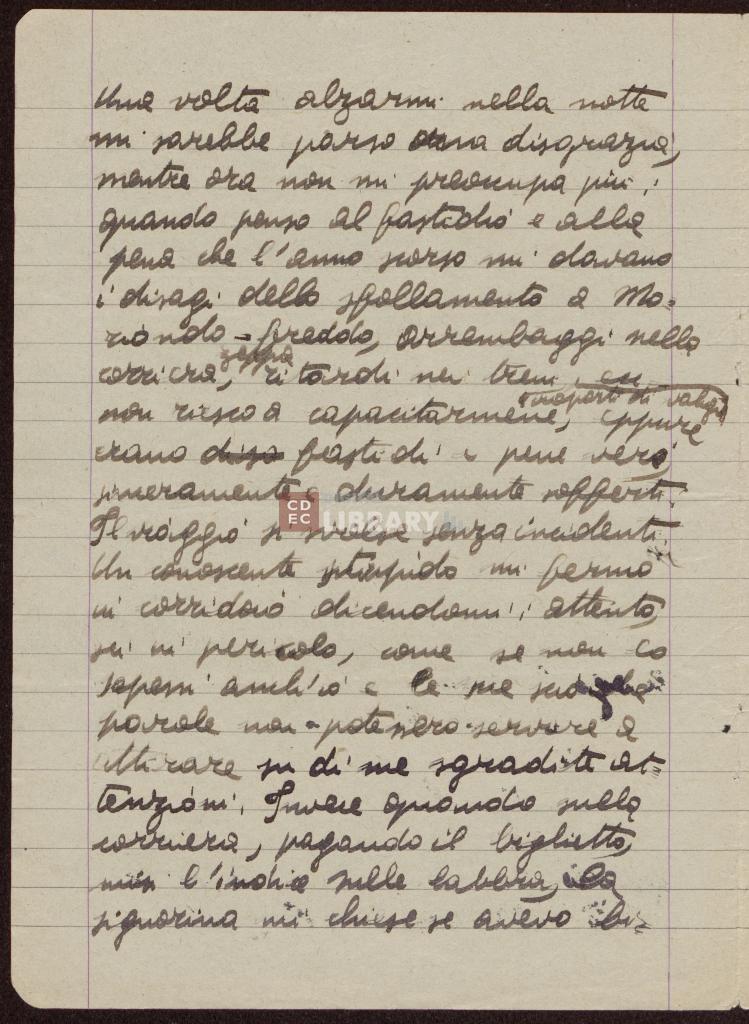 Una volta alzarmi nella notte
mi sarebbe parso una disgrazia,
mentre ora non mi preoccupa più;
quando penso al fastidio e alla
pena che l'anno scorso mi davano
i disagi dello sfollamento a Mo-
riondo - freddo, arrembaggi nella
zeppa
corriera, ritardi nei treni,
trasporti di valigi
non riesco a capacitarmene, eppure
erano fastidi e pene veri,
sinceramente e duramente sofferti.
Il viaggio si svolse senza incidenti.
Un conoscente stupido mi fermò
in corridoio dicendomi: attento,
sei in pericolo, come se non lo
sapessi anch'io e le sue
parole non potessero servire a
attirare su di me sgradite at-
tenzioni. Invece quando sulla
corriera, pagando il biglietto,
misi l'indice sulle labbra, la
signorina mi chiese se avevo bi-
CDEC LIBRARY